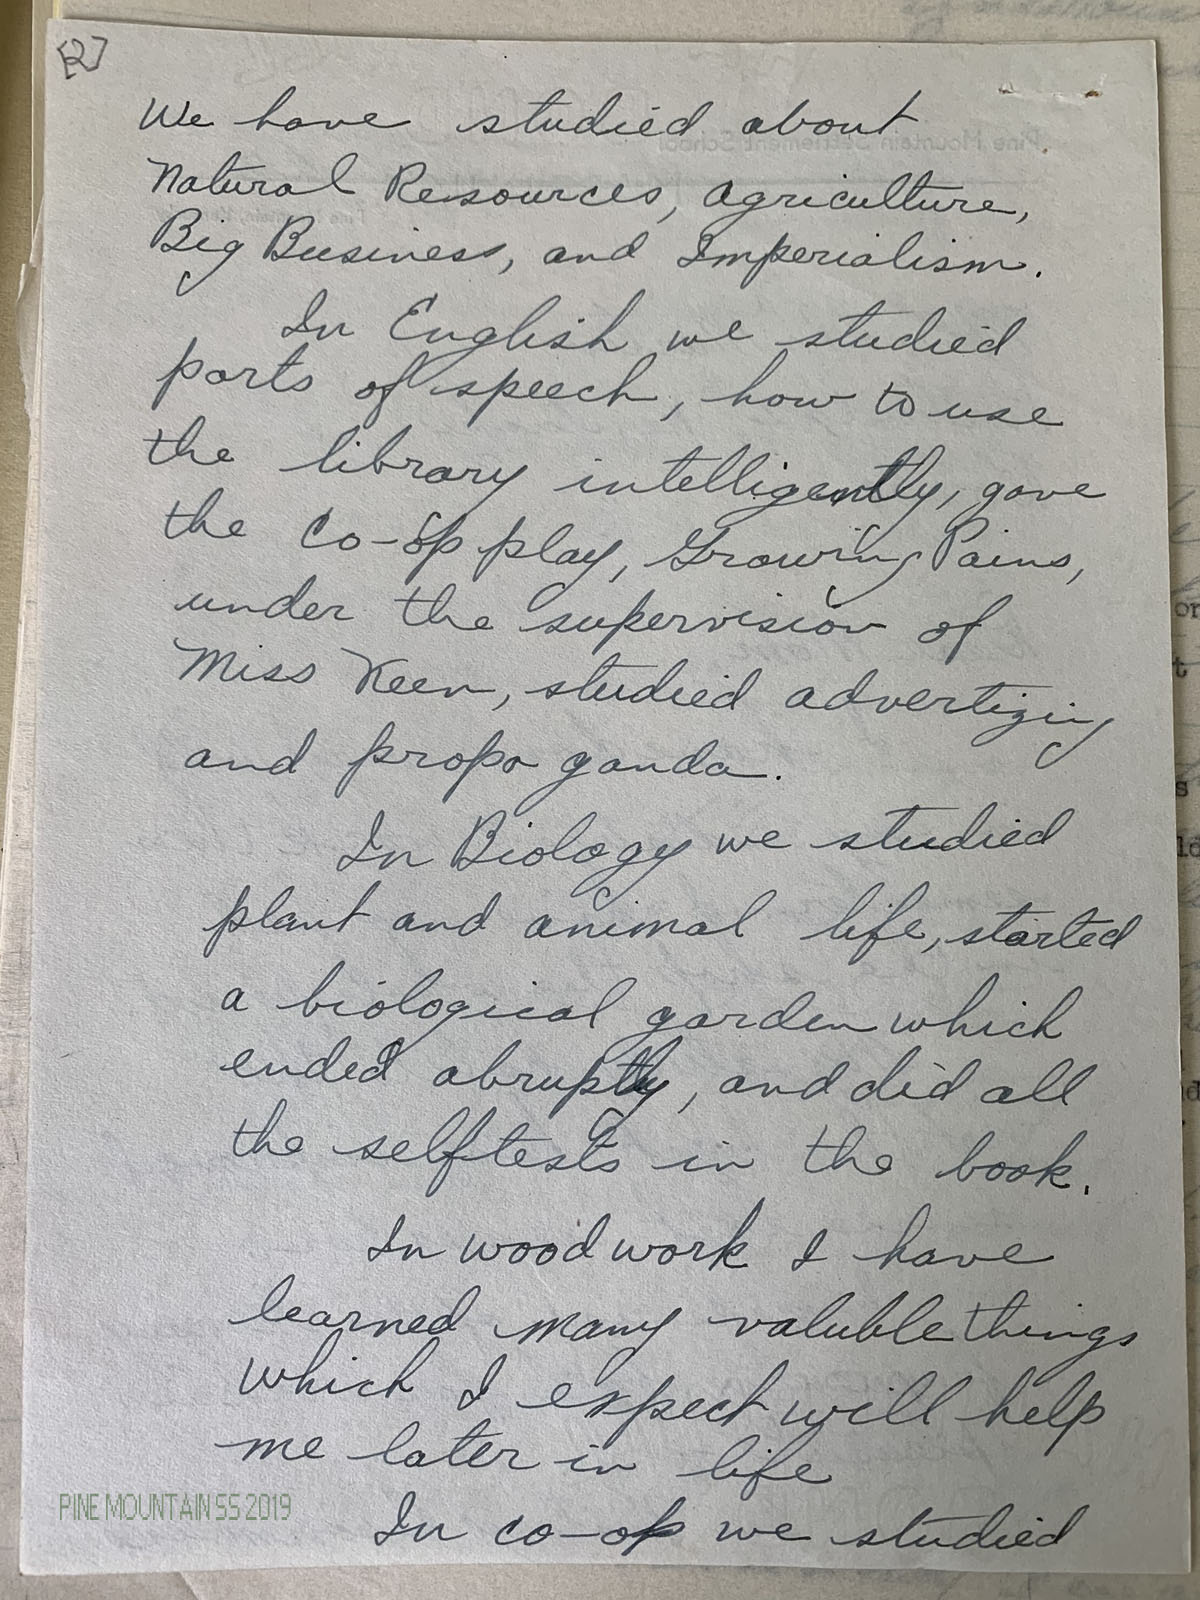 [2]
We have studied about
Natural Resources, agriculture,
Big Business, and Imperialism.
In English we studied
parts of speech, how to use
the library intelligently, gave
the co-op play, Growing Pains,
under the supervision of
Miss Keen, studied advertizing
and propo ganda.
In Biology we studied
plant and animal life, started
a biological garden which
ended abruptly, and did all
the selftests in the book.
In woodwork I have
learned many valuble things
which I expect will help
me later in life
In co-op we studied
PINE MOUNTAIN SS 2019
Pine Mountain Settlement School